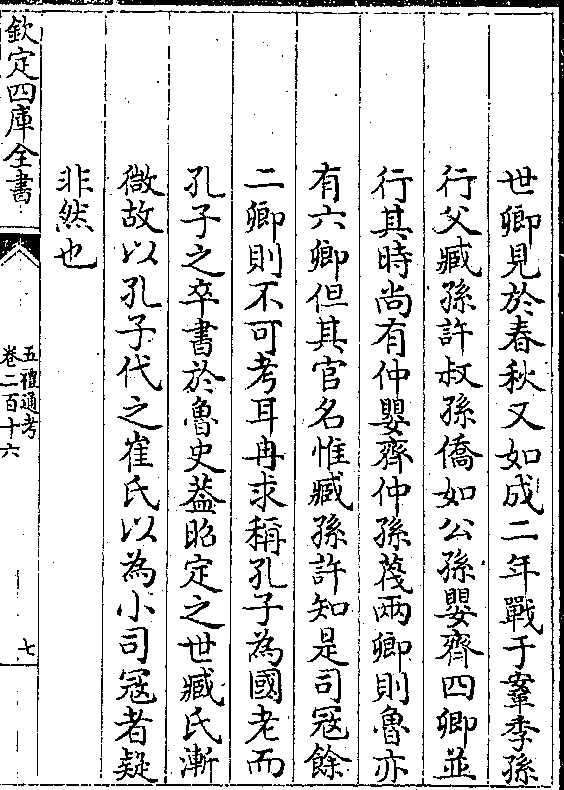 世卿見於春秋又如成二年戰于鞌季孫
行父臧孫許叔孫僑如公孫嬰齊四卿並
行其時尚有仲嬰齊仲孫蔑兩卿則魯亦
有六卿但其官名惟臧孫許知是司冦餘
二卿則不可考耳冉求稱孔子為國老而
孔子之卒書於魯史葢昭定之世臧氏漸
微故以孔子代之崔氏以為小司冦者疑
非然也
欽定四庫全書
五禮通考
卷二百十六
七